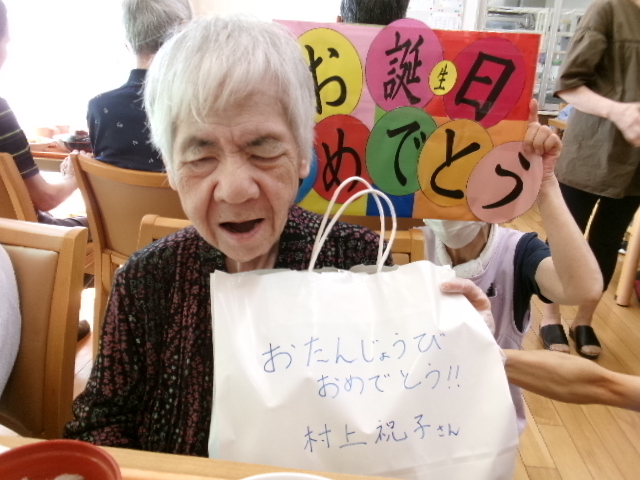 お誕生日
おめでとう
おたんじょうび
おめでとう!!
村上祝子さん